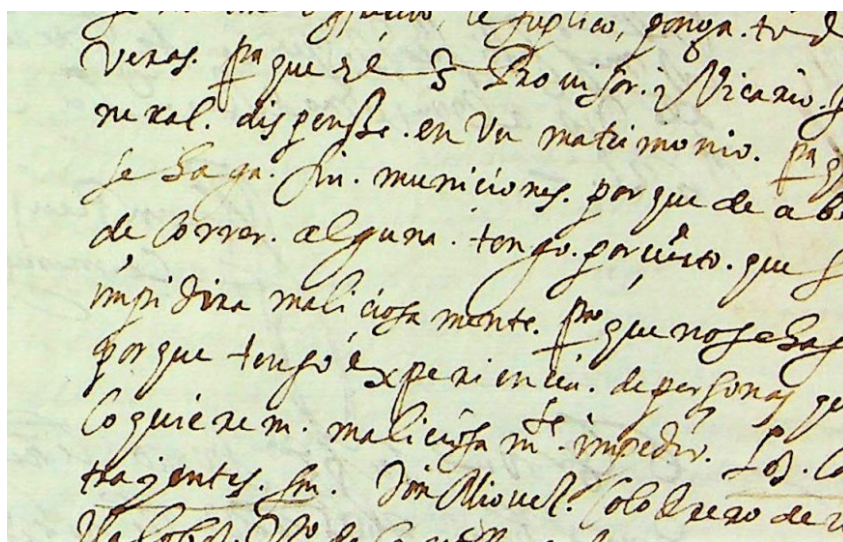 le suplico, ponga. to d
veras. pa que el Sr Provisor. y Vicario.
neral. dispensse. en Un matrimonio. pa q
se haga. sin. municiones. porque de a b
de Correr. alguna. tengo. por cierto. que s
impidira maliciosa mente. pa que no se hag
porque tengo experiencia. de personas que
lo quierem. maliciosa mte. impedir. Los. Co
trayentes. sn. Don Miguel. Colodrero de V